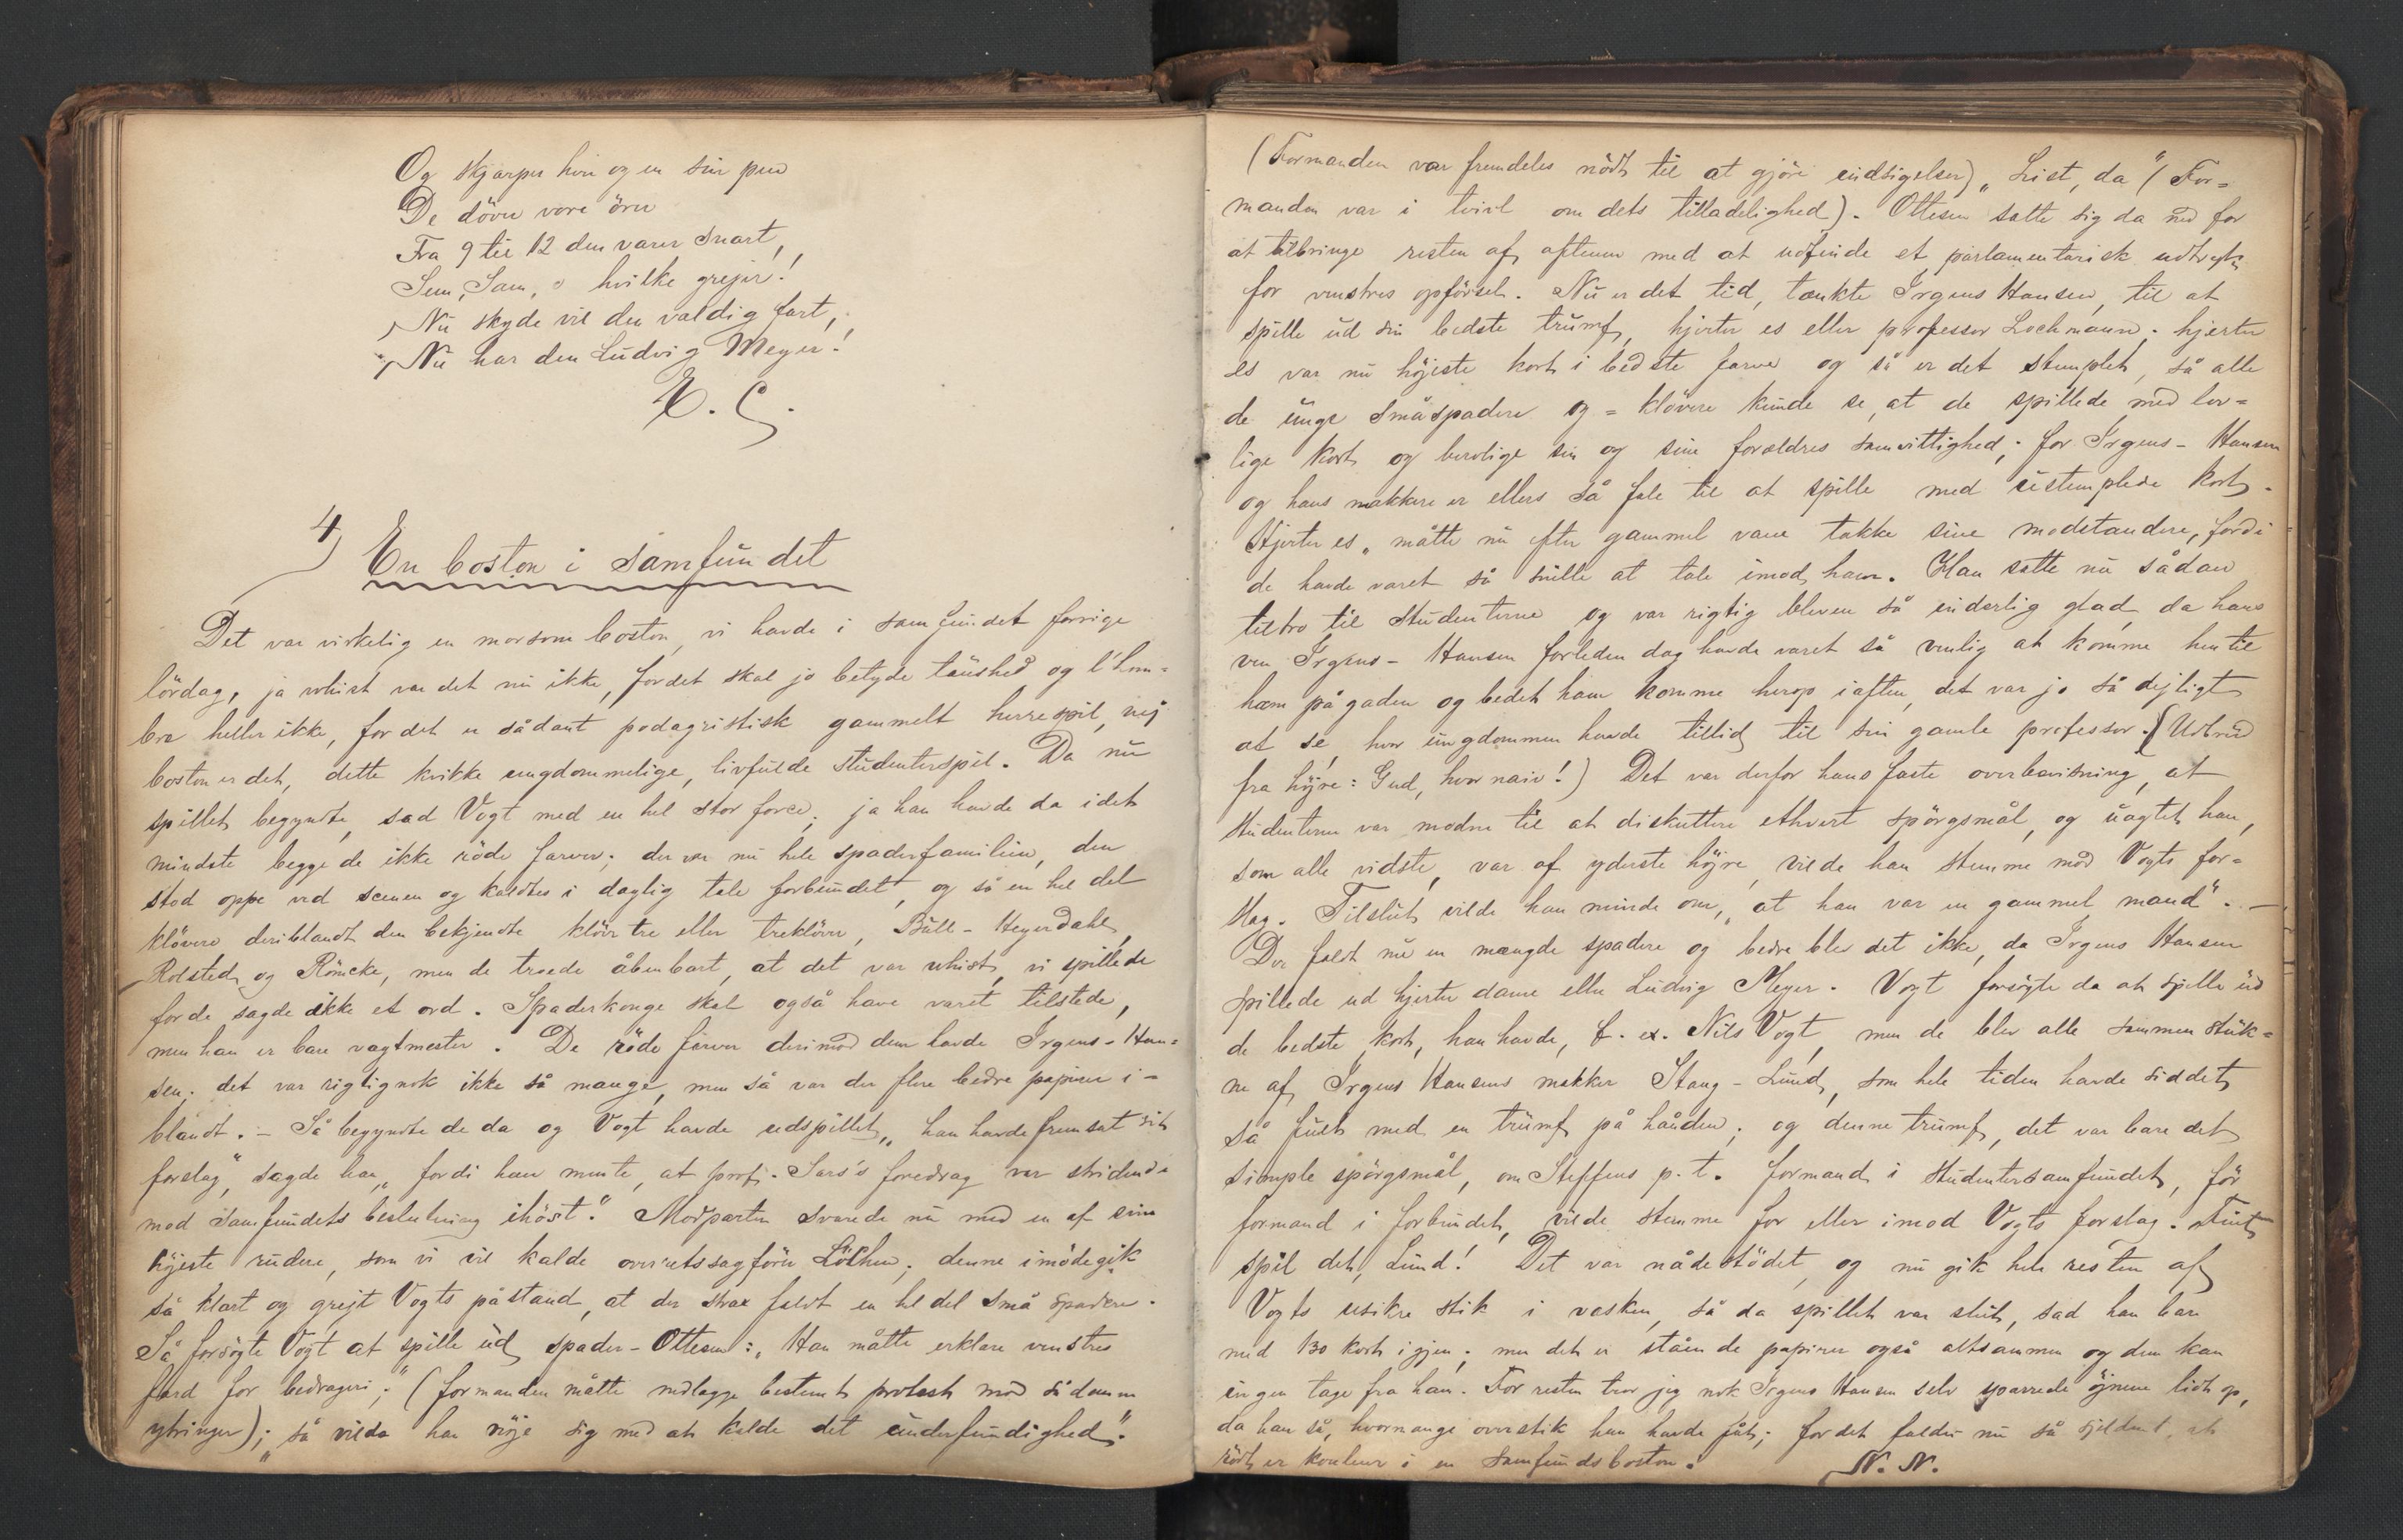 Og skjærper hver og en sin pen
De döve vore ören
Fra 9 til 12 den varer snart,
Sem, Sam, o hvilke grejer!
Nu skyde vil den vældig fart,
Nu har den Ludvig Meyer!
E. C.
4) En boston i samfundet
Det var virkelig en morsom boston, vi havde i samfundet forrige
lördag, ja whist var det nu ikke, for det skal jo betyde taushed og l'hom-
bre heller ikke, for det er sådant podagristisk gammelt herrespil, nej
boston er det, dette kvikke ungdommelige, livfulde studenterspil. Da nu
spillet begyndte, sad Vogt med en hel stor force, ja han havde da i det
mindste begge de ikke röde farver; der var nu hele spaderfamilien, den
stod oppe ved scenen og kaldtes i daglig tale forbundet, og så en hel del
klövere deriblandt den bekjendte klöver tre eller treklöver, Bull-Heyerdahl,
Rolsted og Römcke, men de troede åbenbart, at det var whist, vi spillede
for de sagde ikke et ord. Spaderkonge skal også have været tilstede,
men han er bare vagtmester. De röde farver derimod dem havde Irgens-Han-
sen; det var rigtignok ikke så mange, men så var der flere bedre papirer i-
blandt. - Så begyndte de da og Vogt havde udspillet, „han havde fremsat sit
forslag", sagde han, „fordi han mente, at prof. Sars's foredrag var stridende
mod Samfundets beslutning ihöst." Modparten svarede nu med en af sine
höjeste rudere, som vi vil kalde overretssagförer Löchen; denne imödegik
så klart og grejt Vogts påstand, at der strax faldt en hel del små spadere.
Så forsögte Vogt at spille ud spader-Ottesen: „Han måtte erklære venstres
færd for bedrageri;" (formanden måtte nedlægge bestemt protest mod sådanne
ytringer); „så vilde han nöje sig med at kalde det underfundighed."
(Formanden var fremdeles nödt til at gjöre indsigelser) „List, da" (For-
manden var i tvivl om dets tilladelighed). Ottesen satte sig da ned for
at tilbringe resten af aftenen med at udfinde et parlamentarisk udtryk
for venstres opförsel. Nu er det tid, tænkte Irgens Hansen, til at
spille ud sin bedste trumf, hjerter es eller professor Lochmann; hjerter
es var nu höjeste kort i bedste farve og så er det stemplet, så alle
de unge småspadere og -klövere kunde se, at de spillede med lov-
lige kort og berolige sin og sine forældres samvittighed; for Irgens-Hansen
og hans makkere er ellers så fæle til at spille med ustemplede kort.
Hjerter es måtte nu efter gammel vane takke sine modstandere, fordi
de havde været så snille at tale imod ham. Han satte nu sådan
tiltro til studenterne og var rigtig bleven så inderlig glad, da hans
ven Irgens-Hansen forleden dag havde været så venlig at komme hen til
ham på gaden og bedet ham komme herop iaften, det var jo så dejligt
at se, hvor ungdommen havde tillid til sin gamle professor. (Udbrud
fra höjre: Gud, hvor naiv!) Det var derfor hans faste overbevisning, at
studenterne var modne til at diskuttere ethvert spörgsmål, og uagtet han,
som alle vidste, var af yderste höjre, vilde han stemme mod Vogts for-
slag. Tilslut vilde han minde om, „at han var en gammel mand". -
Der faldt nu en mængde spadere og bedre blev det ikke, da Irgens Hansen
spillede ud hjerter dame eller Ludvig Meyer. Vogt forsögte da at spille ud
de bedste kort, han havde, f. ex. Nils Vogt, men de blev alle sammen stuk-
ne af Irgens Hansens makker Stang-Lund, som hele tiden havde siddet
så fuldt med en trumf på hånden; og denne trumf, det var bare det
simple spörgsmål, om Steffens p. t. formand i studentersamfundet, för
formand i forbundet, vilde stemme for eller imod Vogts forslag. Fint
spil det, Lund! Det var nådestödet, og nu gik hele resten af
Vogts usikre stik i vasken, så da spillet var slut, sad han bare
med 130 kort igjen; men det er stående papirer også altsammen og dem kan
ingen tage fra ham. For resten tror jeg nok Irgens Hansen selv sparrede öjnene lidt op,
da han så, hvormange overstik han havde fåt; for det falder nu så sjeldent, at
rödt er kouleur i en samfundsboston.
N. N.